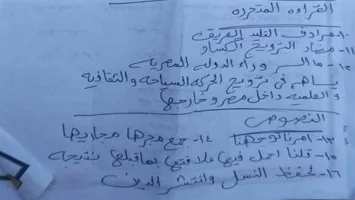 القراءه المتحرره
١٠- مرادف التليد العريق
١١- مضاد الترويج الكساد
١٢- ما السر وراء الدوله المصريه
يساهم فى ترويج الحركه السياحه والثقافيه
والعلميه داخل مصر وخارجها
النصوص
١٣- امرنا توحدنا ١٤- جمع مجرها مجاريها
١٥- قلنا احمل فيها علاقتها بما قبلها نتيجه
١٦- لحفظ النسل وانتشر الدين